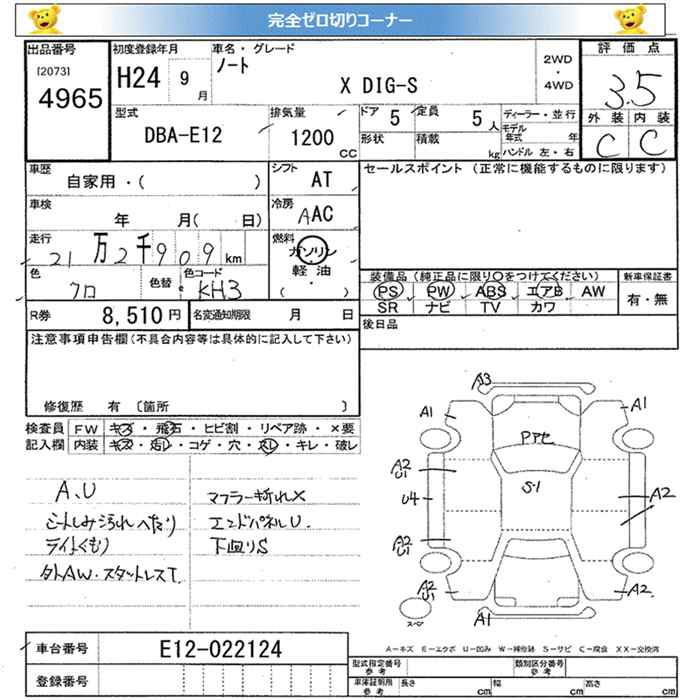 完全ゼロ切りコーナー
出品番号 初度登録年月 車名・グレード 評価点
[2073] ノート 2WD
4965 H24 9月 X DIG-S ・ 3.5
4WD
型式 排気量 ドア 5 定員 5人 ディーラー・並行 外装 内装
DBA-E12 1200 CC 形状 積載 kg モデル年式 年 C C
ハンドル 左・右
車歴 シフト セールスポイント (正常に機能するものに限ります)
自家用・( ) AT
車検 冷房
年 月( 日) AAC
走行 燃料
21万2千909km ガソリン
色 色替 色コード 軽油 装備品 (純正品に限り〇をつけてください) 新車保証書
クロ KH3 ( ) PS PW ABS エアB AW 有・無
SR ナビ TV カワ
R券 8,510円 名変通知期限 月 日 後日品
注意事項申告欄(不具合内容等は具体的に記入して下さい)
修復歴 有 〔箇所 〕
検査員 FW キズ・飛石・ヒビ割・リペア跡・×要
記入欄 内装 キズ・汚レ・コゲ・穴・スレ・キレ・破レ
A、U マフラー折れX
シートしみ汚れへたり エンドパネルU.
ライトくもり 下廻りS
外AW・スタットレスT.
A3
A1 A1
Pアセ
A2 S1
U4 A2
A2
U1
A2 A2
U1
A1
A−キズ E−エクボ U−凹み W−補修跡 S−サビ C−腐食 XX−交換済
車台番号 E12-022124 型式指定番号 参考 類別区分番号 参考
登録番号 車庫証明用 参考 長さ cm 幅 cm 高さ cm